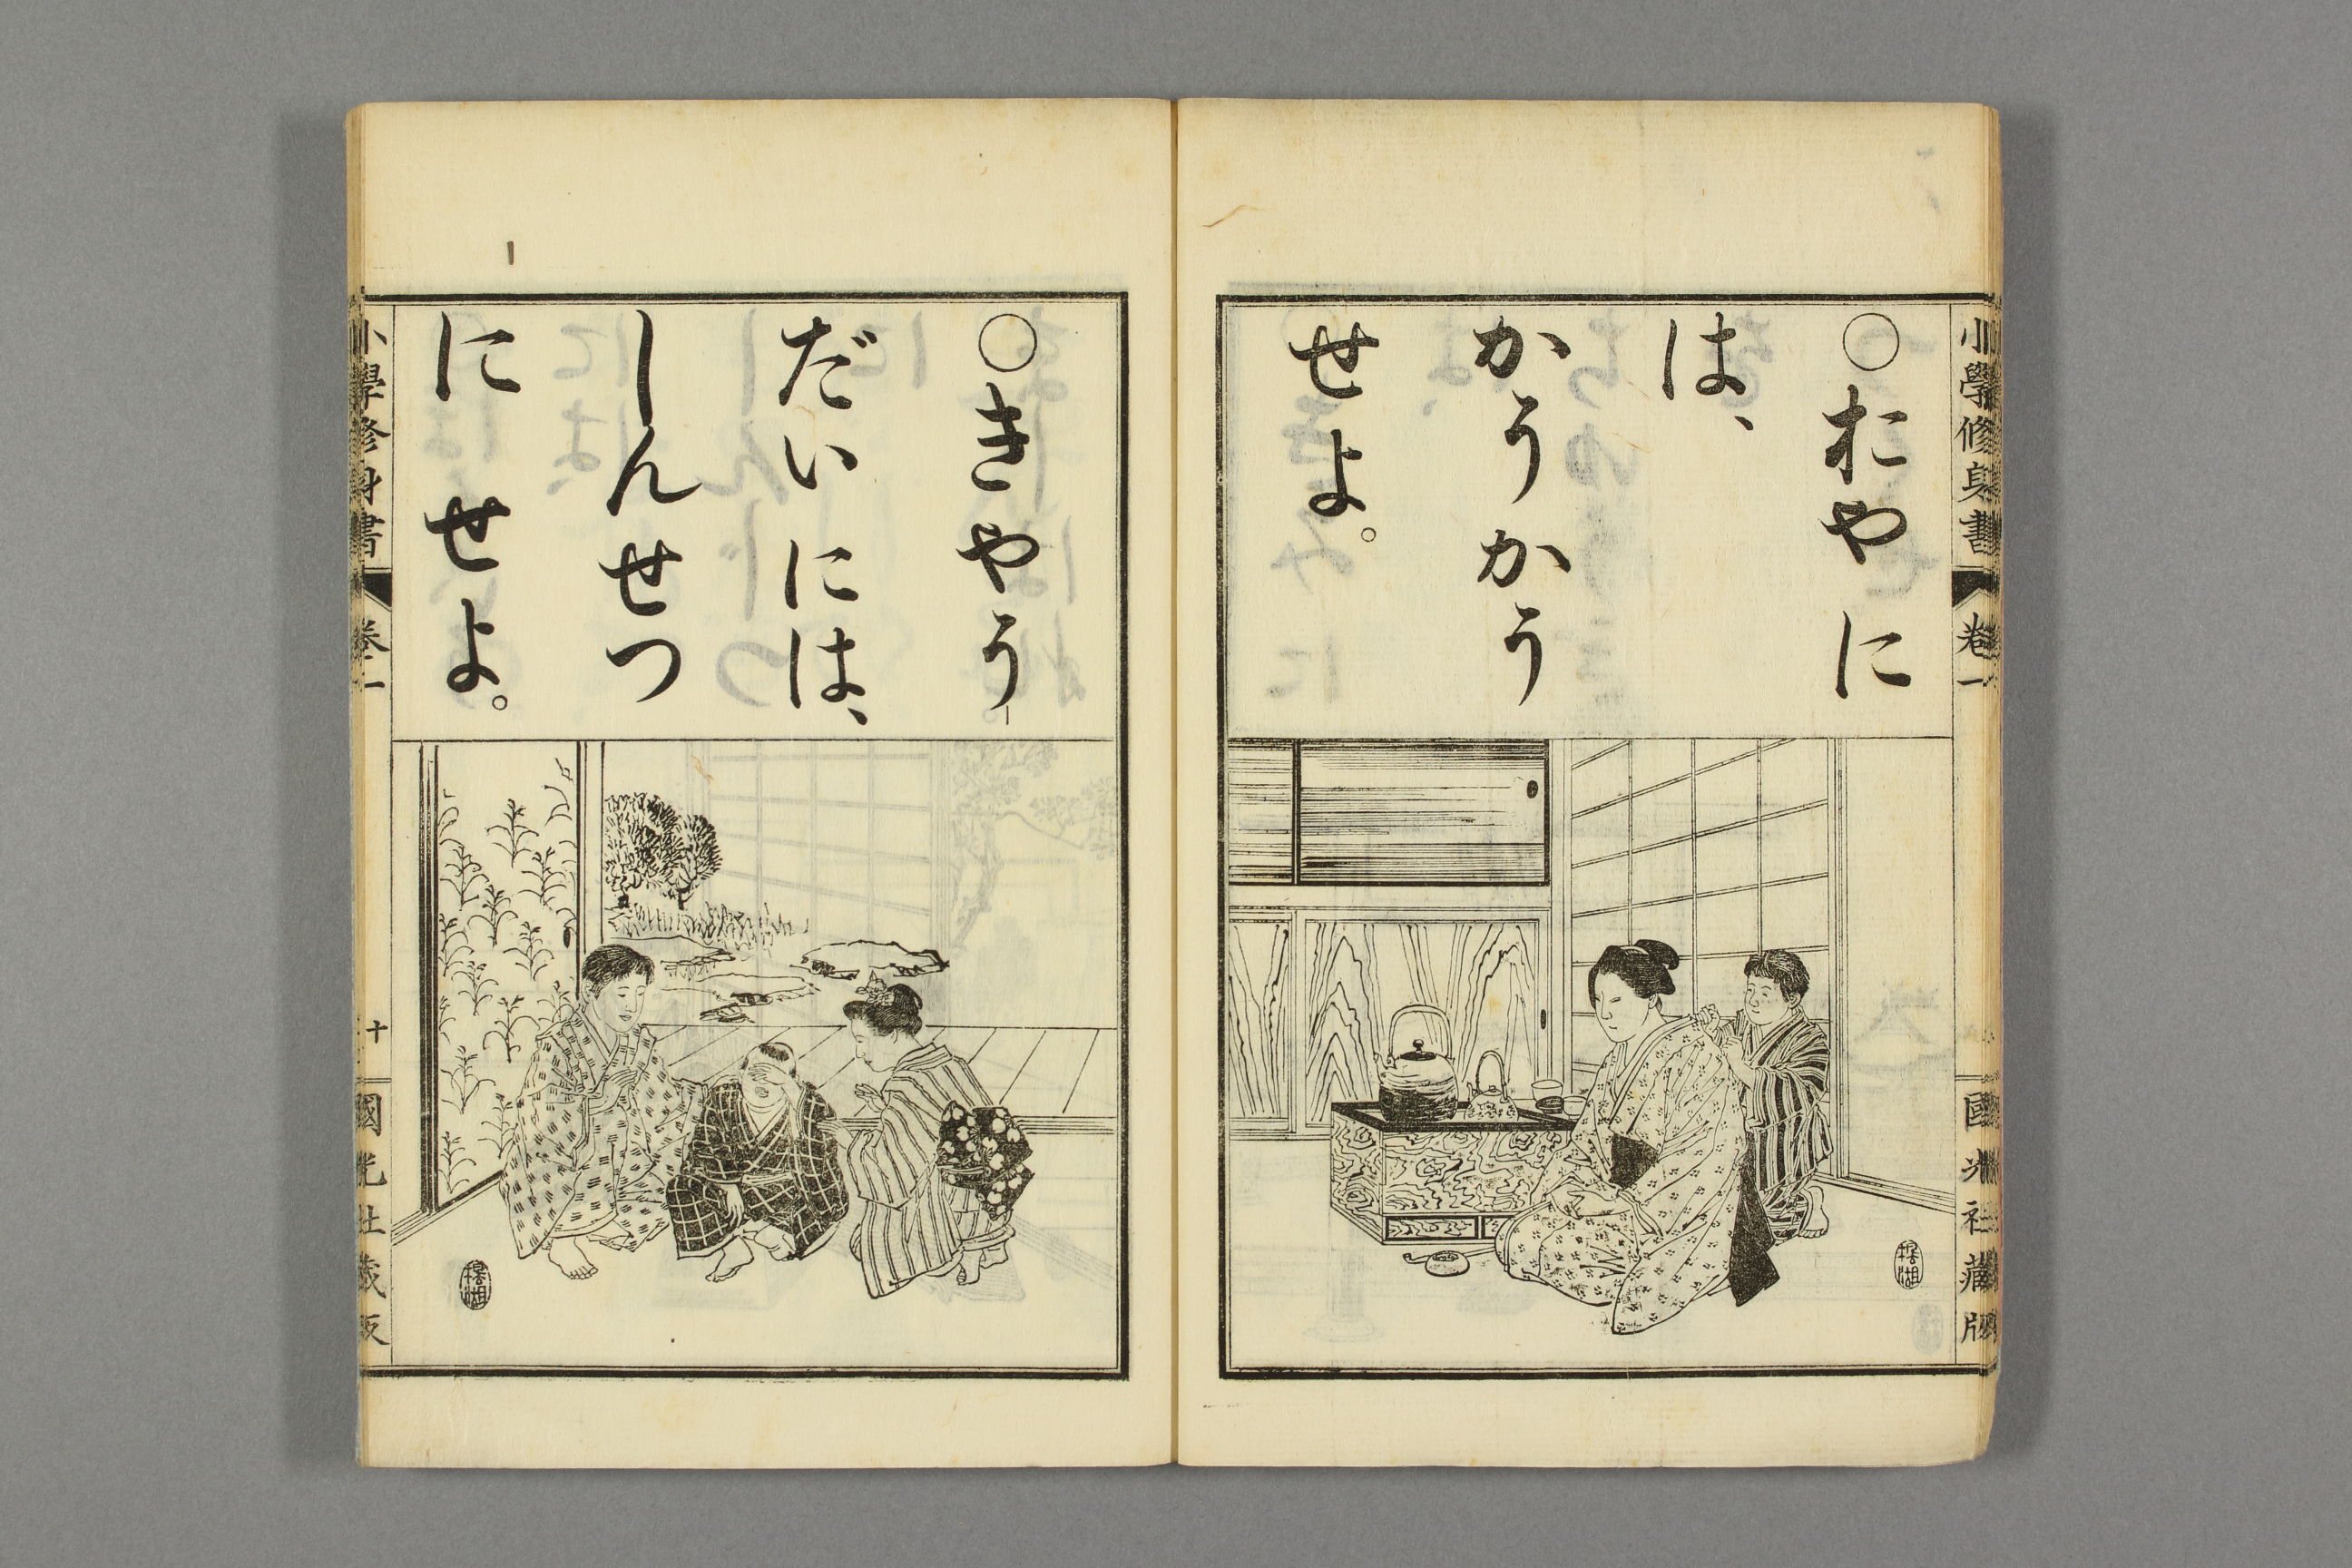 小學修身書 卷一 國光社藏版
○おやに
は、
かうかう
せよ。
○きやう
だいには、
しんせつ
に せよ。
小學修身書 卷一 十 國光社藏版